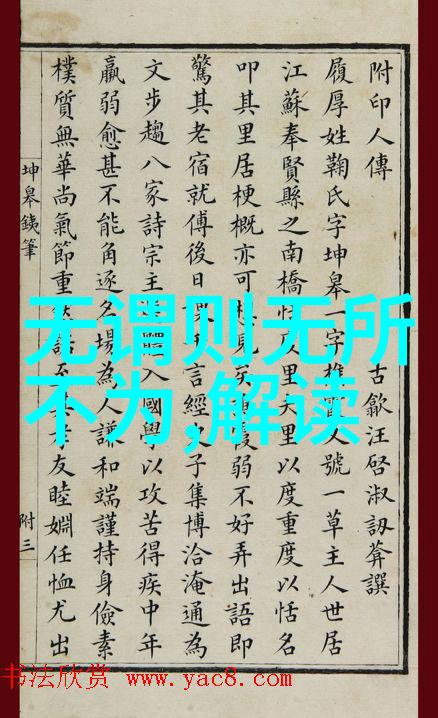 附印人傳
古歙汪啓淑訒葊譔
履厚姓鞠氏字坤皋一字又號一草主人世居
江蘇奉賢縣之南橋里夫里以度重度以恬名
叩其里居梗概亦可想見矣弱不好弄出語即
驚其老宿就傅後日言經子集博洽淹通為
文步趨八家詩宗主入國學以攻苦得疾中年
羸弱愈甚不能角逐名場為人謙和端謹持身儉素
樸質無華尚氣節重諾至其友睦婣任恤尤出
坤皋銕筆
附三
无谓则无所
不为,解读
书法欣赏 www.yac8.com